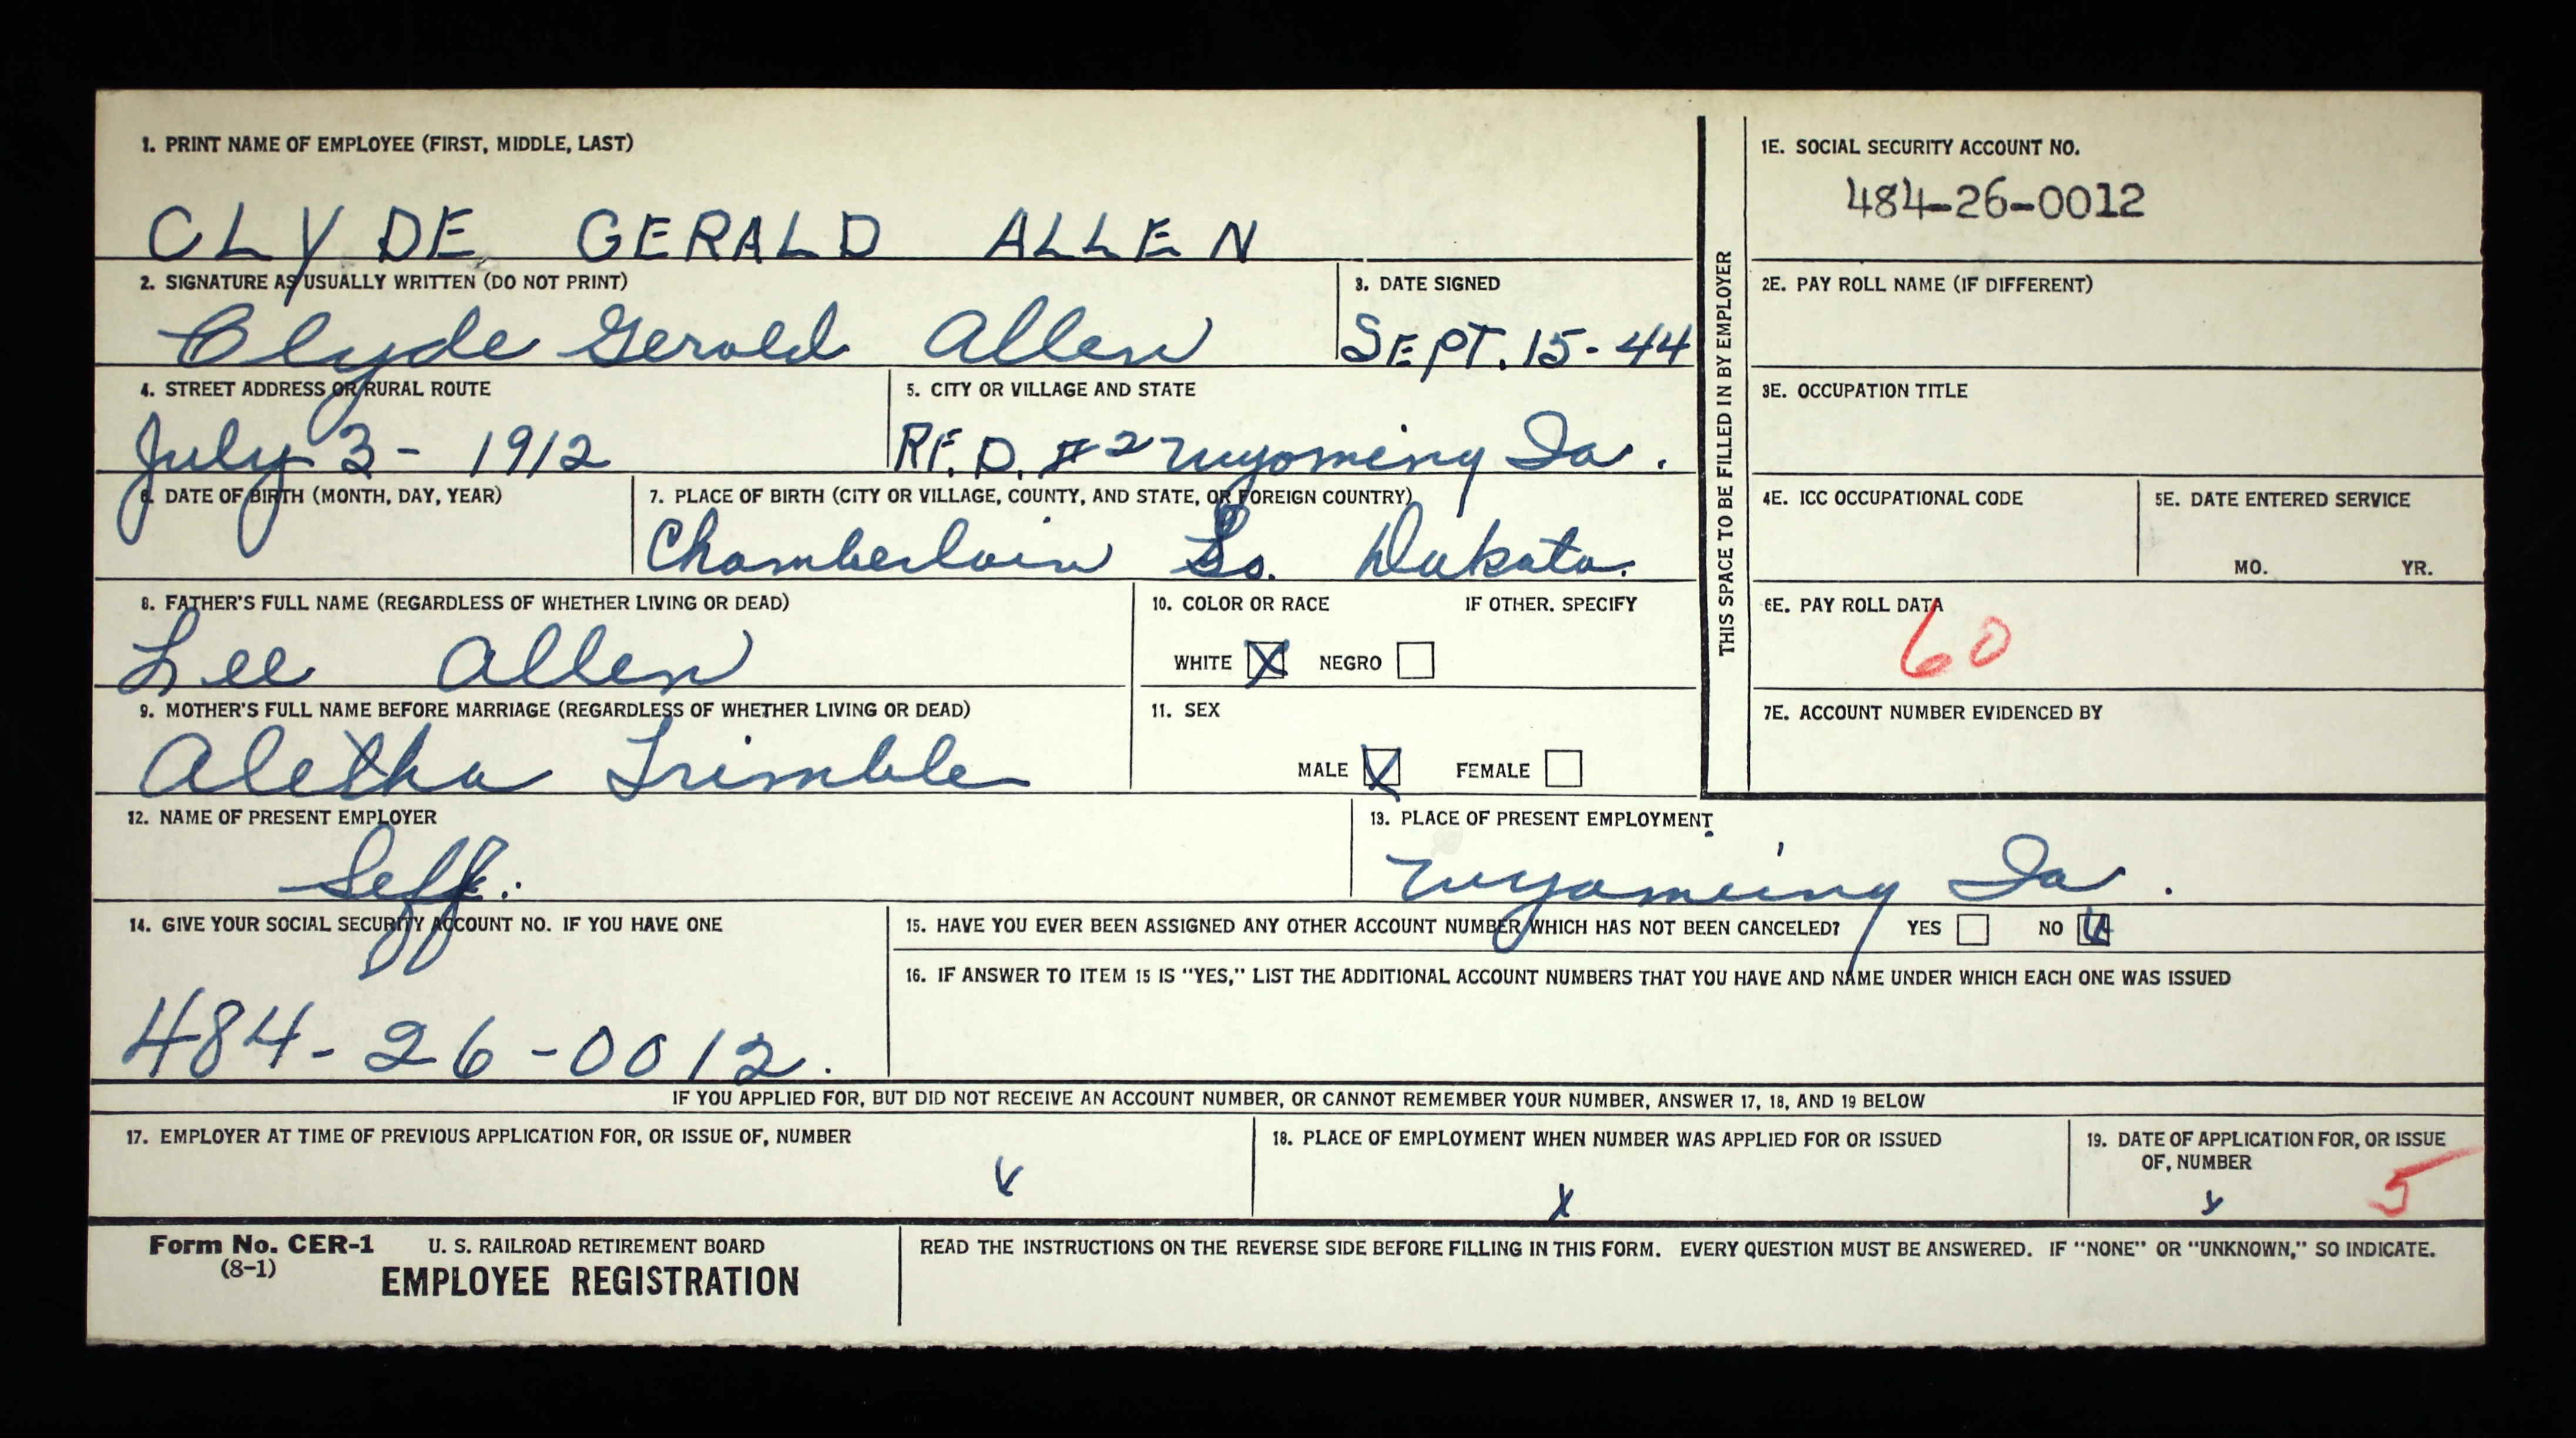 1. PRINT NAME OF EMPLOYEE (FIRST, MIDDLE, LAST)
CLYDE GERALD ALLEN
2. SIGNATURE AS USUALLY WRITTEN (DO NOT PRINT)
Clyde Gerald Allen
3. DATE SIGNED
SEPT. 15-44
4. STREET ADDRESS OR RURAL ROUTE
July 3- 1912
5. CITY OR VILLAGE AND STATE
R.F.D. #2 Wyoming Ia.
6. DATE OF BIRTH (MONTH, DAY, YEAR)
7. PLACE OF BIRTH (CITY OR VILLAGE, COUNTY, AND STATE, OR FOREIGN COUNTRY)
Chamberlain So. Dakota.
8. FATHER'S FULL NAME (REGARDLESS OF WHETHER LIVING OR DEAD)
Lee Allen
10. COLOR OR RACE IF OTHER. SPECIFY
WHITE X NEGRO
9. MOTHER'S FULL NAME BEFORE MARRIAGE (REGARDLESS OF WHETHER LIVING OR DEAD)
Aletha Trimble
11. SEX
MALE X FEMALE
THIS SPACE TO BE FILLED IN BY EMPLOYER
1E. SOCIAL SECURITY ACCOUNT NO.
484-26-0012
2E. PAY ROLL NAME (IF DIFFERENT)
3E. OCCUPATION TITLE
4E. ICC OCCUPATIONAL CODE
5E. DATE ENTERED SERVICE
MO. YR.
6E. PAY ROLL DATA
60
7E. ACCOUNT NUMBER EVIDENCED BY
12. NAME OF PRESENT EMPLOYER
Self.
13. PLACE OF PRESENT EMPLOYMENT
Wyomeing Ia.
14. GIVE YOUR SOCIAL SECURITY ACCOUNT NO. IF YOU HAVE ONE
484-26-0012.
15. HAVE YOU EVER BEEN ASSIGNED ANY OTHER ACCOUNT NUMBER WHICH HAS NOT BEEN CANCELED? YES NO X
16. IF ANSWER TO ITEM 15 IS "YES," LIST THE ADDITIONAL ACCOUNT NUMBERS THAT YOU HAVE AND NAME UNDER WHICH EACH ONE WAS ISSUED
IF YOU APPLIED FOR, BUT DID NOT RECEIVE AN ACCOUNT NUMBER, OR CANNOT REMEMBER YOUR NUMBER, ANSWER 17, 18, AND 19 BELOW
17. EMPLOYER AT TIME OF PREVIOUS APPLICATION FOR, OR ISSUE OF, NUMBER
X
18. PLACE OF EMPLOYMENT WHEN NUMBER WAS APPLIED FOR OR ISSUED
X
19. DATE OF APPLICATION FOR, OR ISSUE
OF, NUMBER
X 5
Form No. CER-1
(8-1)
U. S. RAILROAD RETIREMENT BOARD
EMPLOYEE REGISTRATION
READ THE INSTRUCTIONS ON THE REVERSE SIDE BEFORE FILLING IN THIS FORM. EVERY QUESTION MUST BE ANSWERED. IF "NONE" OR "UNKNOWN," SO INDICATE.